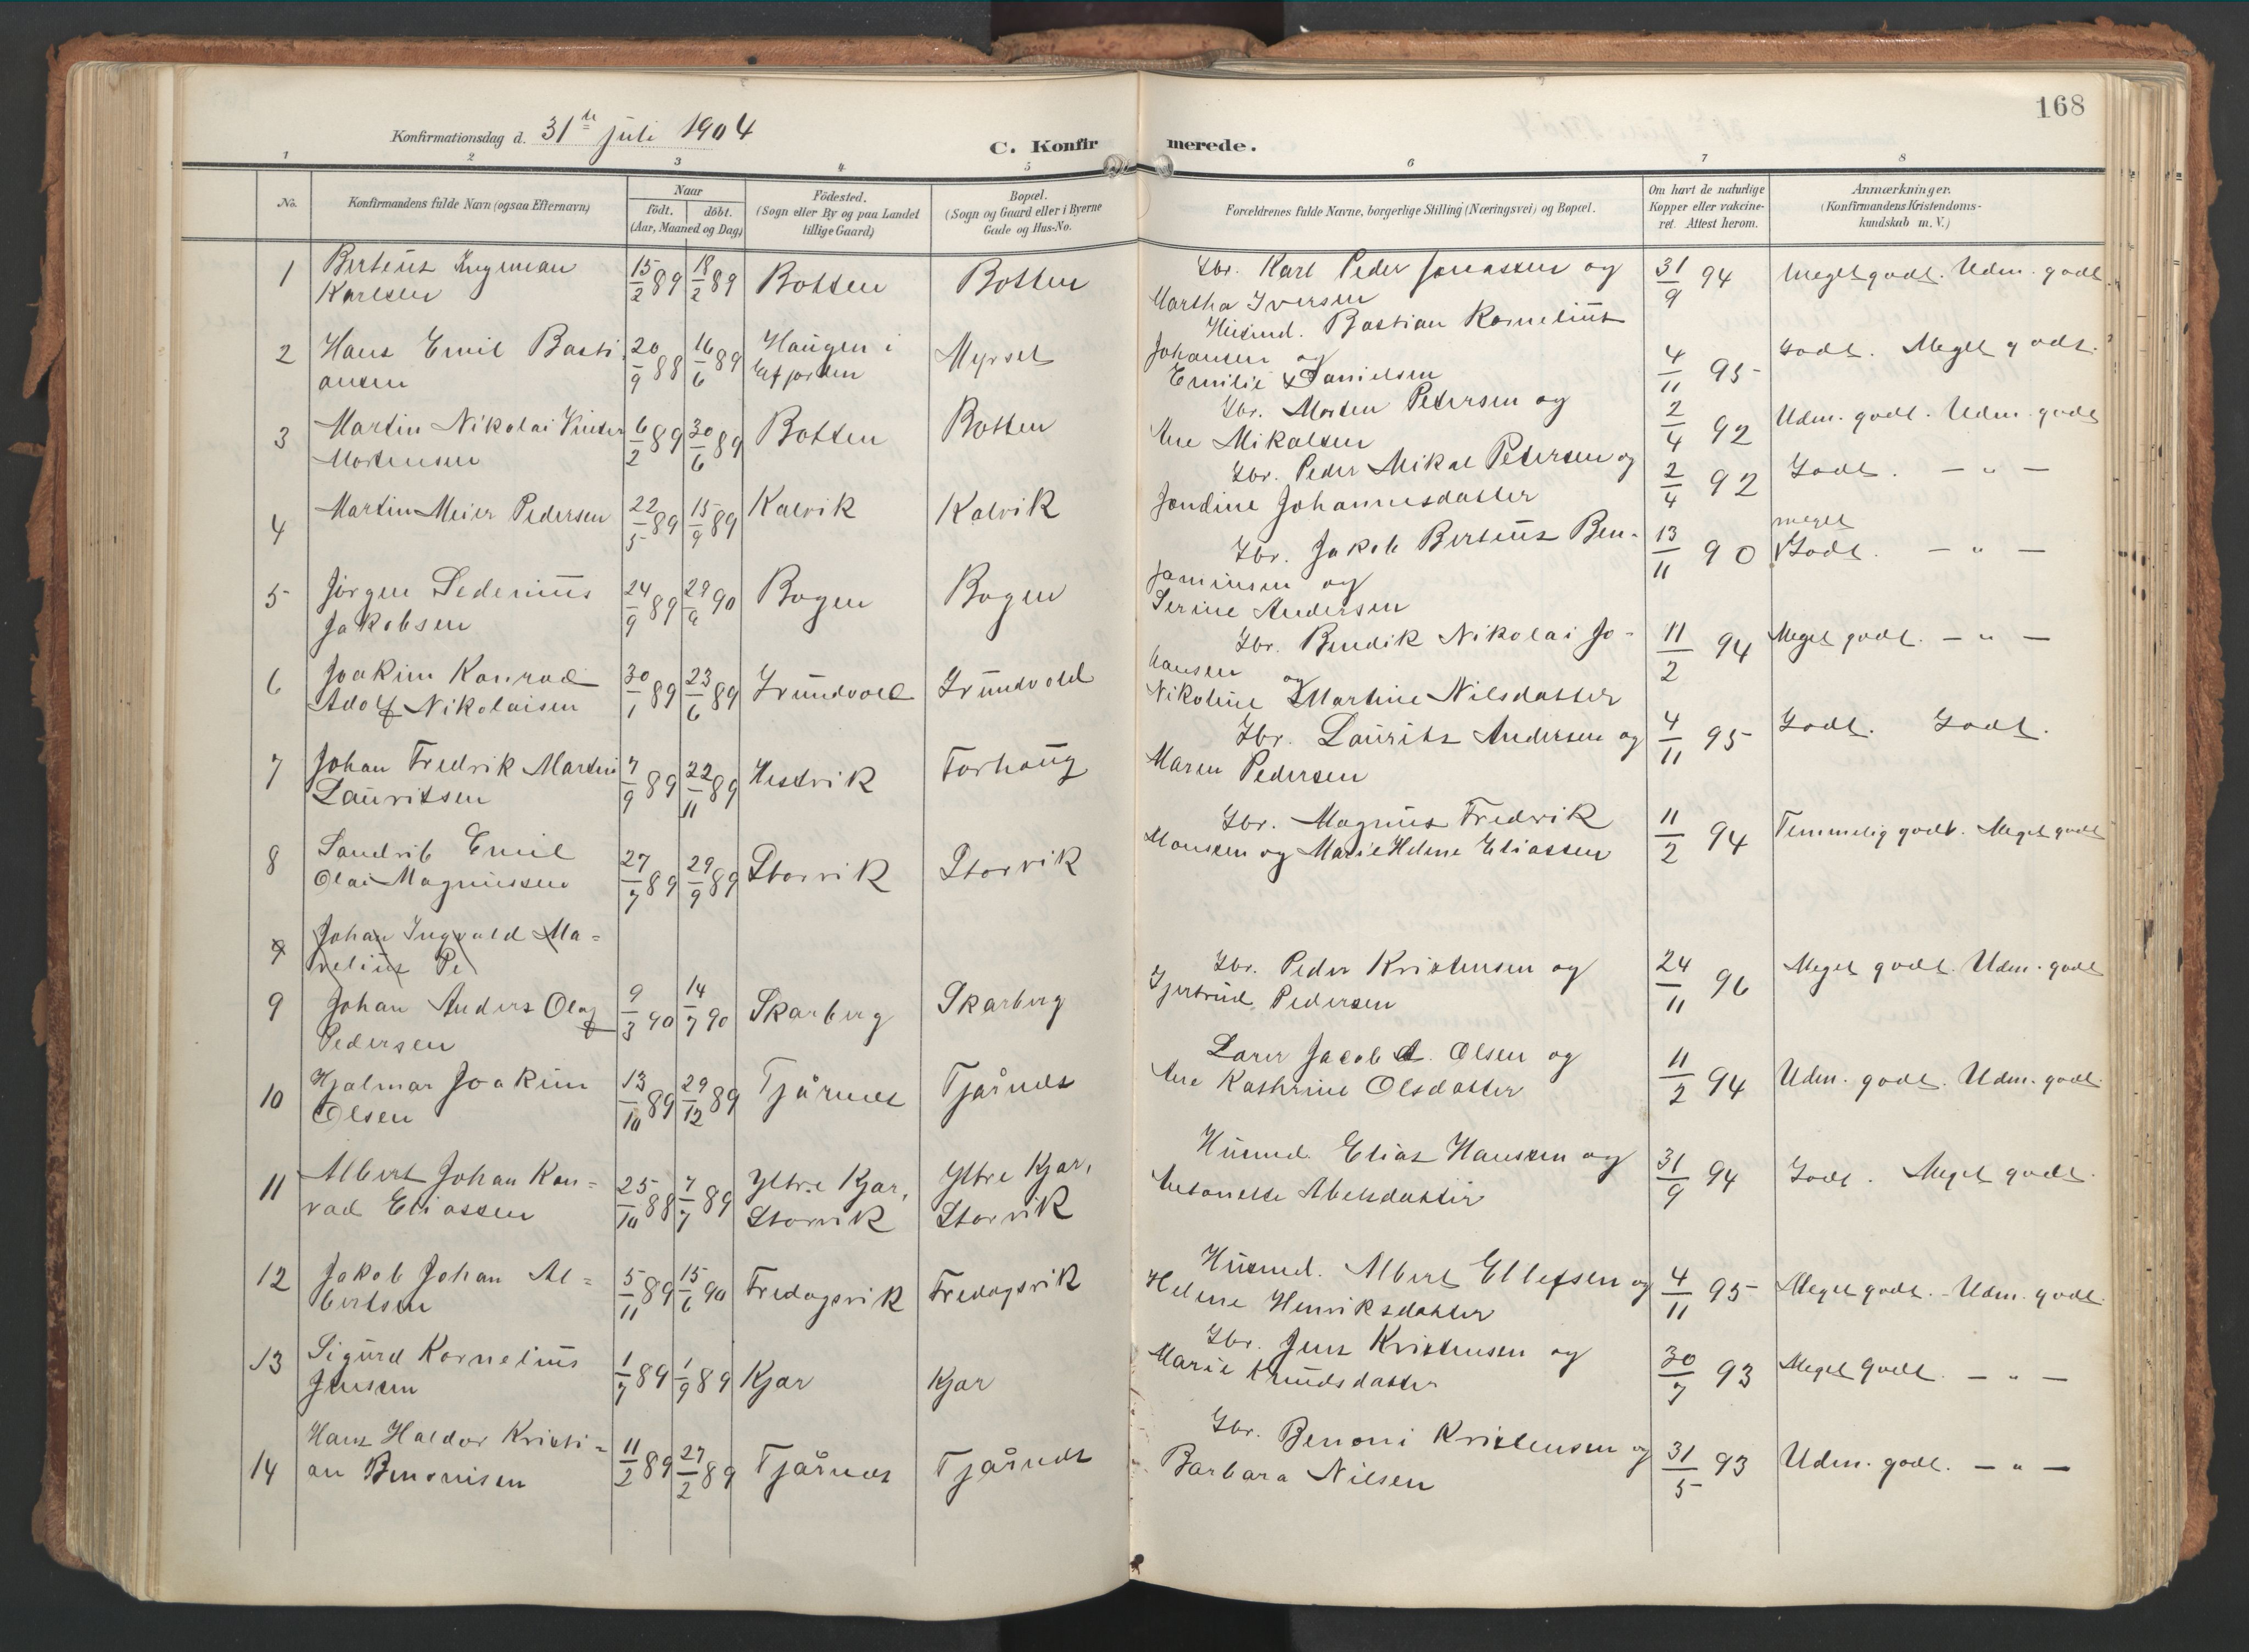 168
Konfirmationsdag d. 31te juli 1904
C. Konfirmerede.
1 2 3 4 5 6 7 8
No.
Konfirmandens fulde Navn (ogsaa Efternavn)
Naar
födt. döbt.
(Aar, Maaned og Dag)
Födested.
(Sogn eller By og paa Landet
tillige Gaard)
Bopæl.
(Sogn og Gaard eller i Byerne
Gade og Hus-No.
Forældrenes fulde Navne, borgerlige Stilling (Næringsvei) og Bopæl.
Om havt de naturlige
Kopper eller vakcine-
ret. Attest herom.
Anmærkninger.
(Konfirmandens Kristendoms-
kundskab m. V.)
1 Berteus Ingeman
Karlsen
15/2 89 18/2 89 Botten Botten
Gbr. Karl Peder Jonassen og
Martha Iversen
31/9 94 Meget godt. Udm. godt
2 Hans Emil Basti
ansen
20/9 88 16/6 89 Haugen i
Efjorden
Myrset
Husmd. Bastian Kornelius
Johansen og
Emilie Danielsen
4/11 95 Godt. Meget godt.
3 Martin Nikolai Vinter
Mortensen
6/2 89 30/6 89 Botten Botten
Gbr. Morten Petersen og
Ane Mikalsen
2/4 92 Udm. godt. Udm. godt
4 Martin Meier Pedersen
22/5 89 15/9 89 Kalvik Kalvik
Gbr. Peder Mikal Petersen og
Jondine Johannesdatter
2/4 92 Godt. — " —
5 Jörgen Sedenius
Jakobsen
24/9 89 29/9 90 Bogen Bogen
Gbr. Jakob Berteus Ben-
jaminsen og
Serine Andersen
13/11 90 meget
Godt. — " —
6 Joakim Konrad
Adolf Nikolaisen
30/1 89 23/6 89 Grundvold Grundvold
Gbr. Bendik Nikolai Jo-
hansen og
Nikoline Martine Nilsdatter
11/2 94 Meget godt. — " —
7 Johan Fredrik Martin
Lauritsen
7/9 89 22/11 89 Hestvik Forhaug
Gbr. Laurits Andersen og
Maren Pedersen
4/11 95 Godt. Godt.
8 Sandrib Emil
Olai Magnussen
27/7 89 29/9 89 Storvik Storvik
Gbr. Magnus Fredrik
Monsen og Marie Helene Eliassen
11/2 94 Temmelig godt. Meget godt
9 Johan Ingvald Ma=
relius Pe
9 Johan Anders Olaf
Pedersen
9/3 90 14/7 90 Skarberg Skarberg
Gbr. Peder Kristensen og
Gjertrud Pedersen
24/11 96 Meget godt. Udm. godt
10 Hjalmar Joakim
Olsen
13/10 89 29/12 89 Tjårnes Tjårnes
Lærer Jacob A. Olsen og
Ane Kathrine Olsdatter
11/2 94 Udm. godt. Udm. godt.
11 Albert Johan Kon=
rad Eliassen
25/10 88 7/7 89 Yttre Kjær,
Storvik
Yttre Kjær,
Storvik
Husmd. Elias Hansen og
Antonette Abelsdatter
31/9 94 Godt. Meget godt.
12 Jakob Johan Al=
bertsen
5/11 89 15/6 90 Fredagsvik Fredagsvik
Husmd. Albert Ellefsen og
Helene Henriksdatter
4/11 95 Meget godt. - Udm. godt.
13 Sigurd Kornelius
Jensen
1/7 89 1/9 89 Kjær Kjær
Gbr. Jens Kristensen og
Marie Knudsdatter
30/7 93 Meget godt. — " —
14 Hans Haldor Kristi=
an Benonisen
11/2 89 27/2 89 Tjårnes Tjårnes
Gbr. Benoni Kristensen og
Barbara Nilsen
31/5 93 Udm. godt. — " —